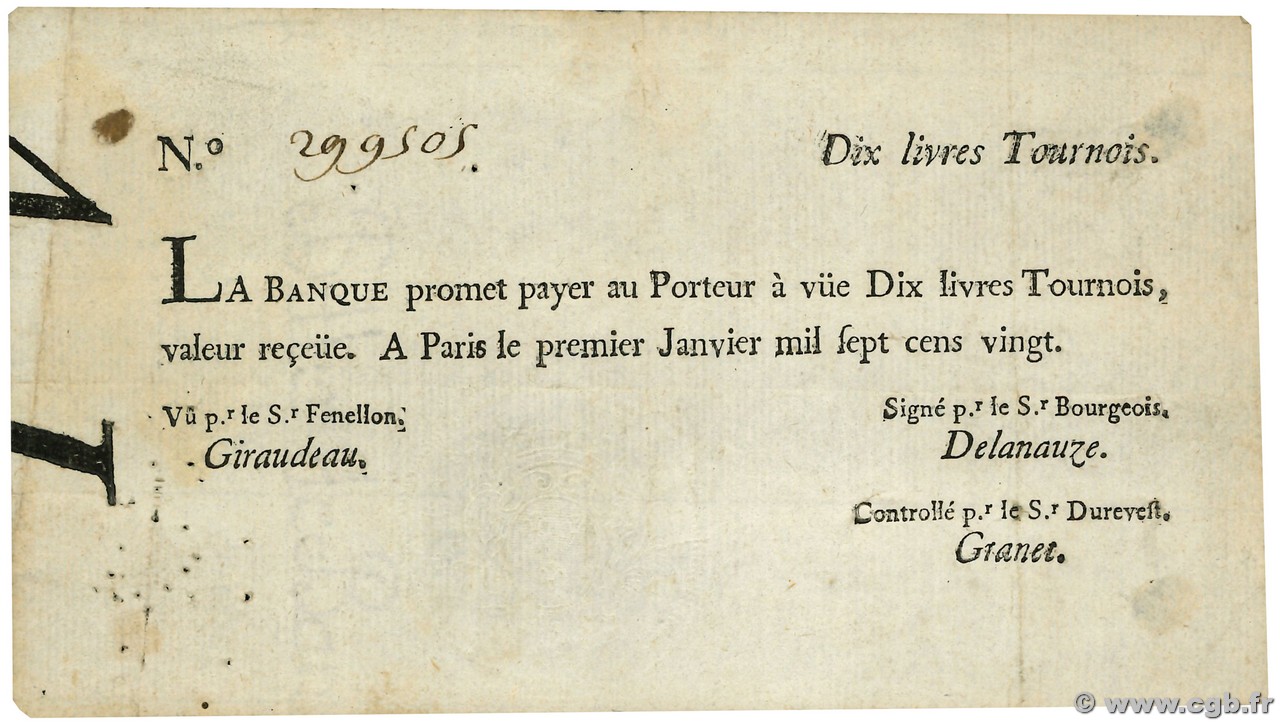 N.º 299505. Dix livres Tournois.
LA BANQUE promet payer au Porteur à vüe Dix livres Tournois,
valeur reçeüe. A Paris le premier Janvier mil ſept cens vingt.
Vû p.r le S.r Fenellon. Signé p.r le S.r Bourgeois.
Giraudeau. Delanauze.
Controllé p.r le S.r Dureveſt.
Granet.
© www.cgb.fr